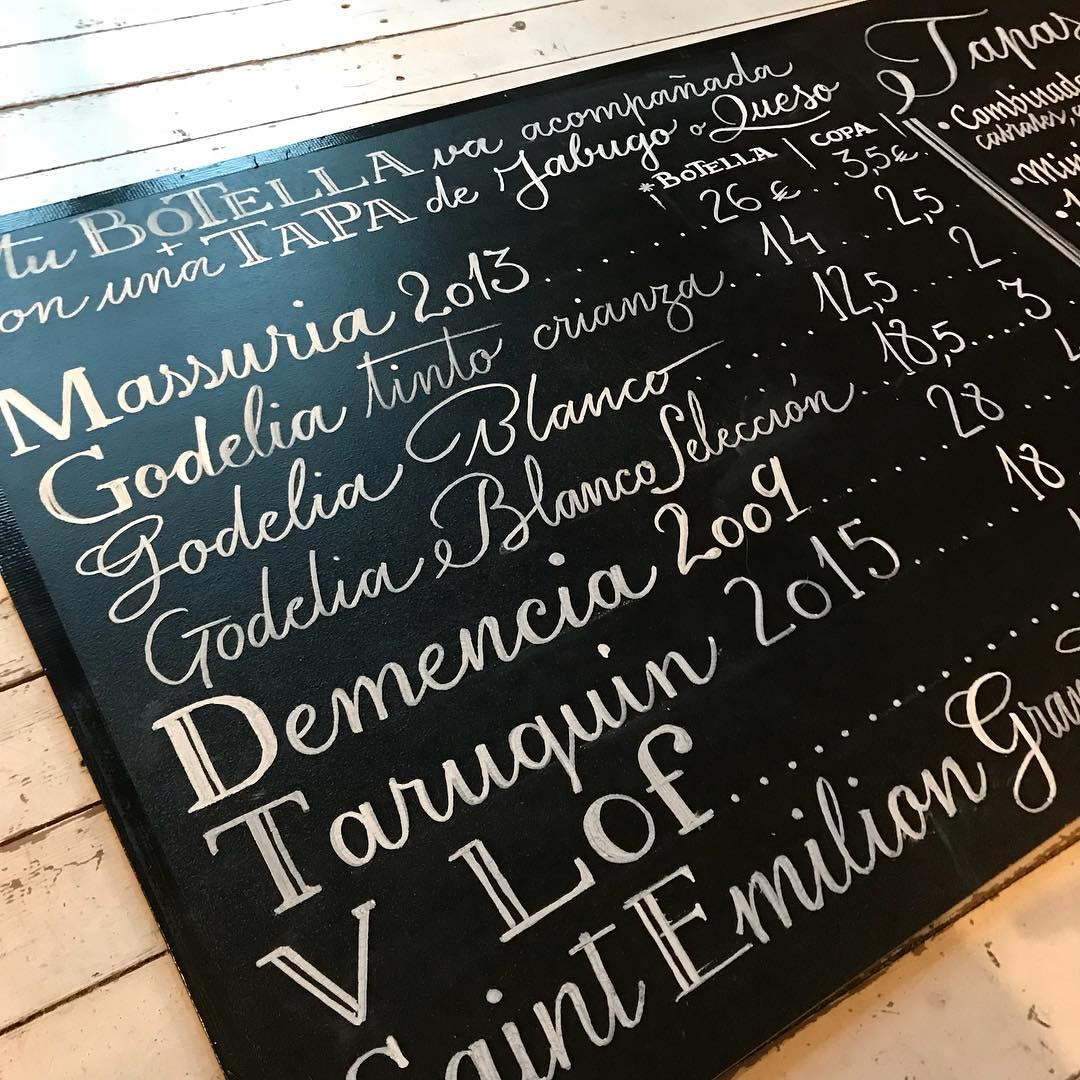 tu BOTELLA va acompañada
on una + TAPA de Jabugo o Queso
* BOTELLA | COPA
Massuria 2013 .......... 26 € ... 3,5 €.
Godelia tinto crianza. .. 14 .... 2,5.
Godelia Blanco .... 12,5 ... 2.
Godelia Blanco Selección .. 18,5 .... 3
Demencia 2009 ..... 28 ..
Taruquin 2015 ...... 18
V Lof ...........
Saint Emilion Gran
Tapas
• Combinado
• Mini